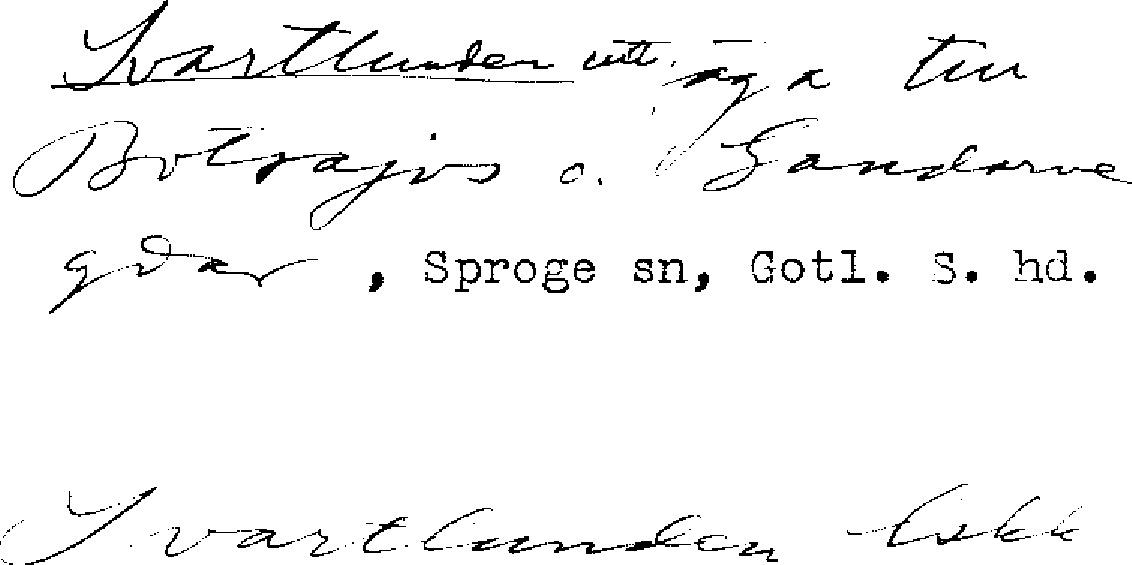 Svartlunden utt. äga till
Botvajvs o. Gandarve
gdar, Sproge sn, Gotl. S. hd.
Svartlunden Eskk